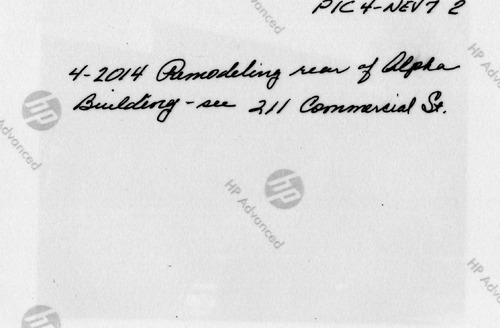 PIC 4-NEV7 2
4-2014 Remodeling rear of Alpha
Building - see 211 Commercial St.
HP Advanced
HP Advanced
HP Advanced
HP Advanced